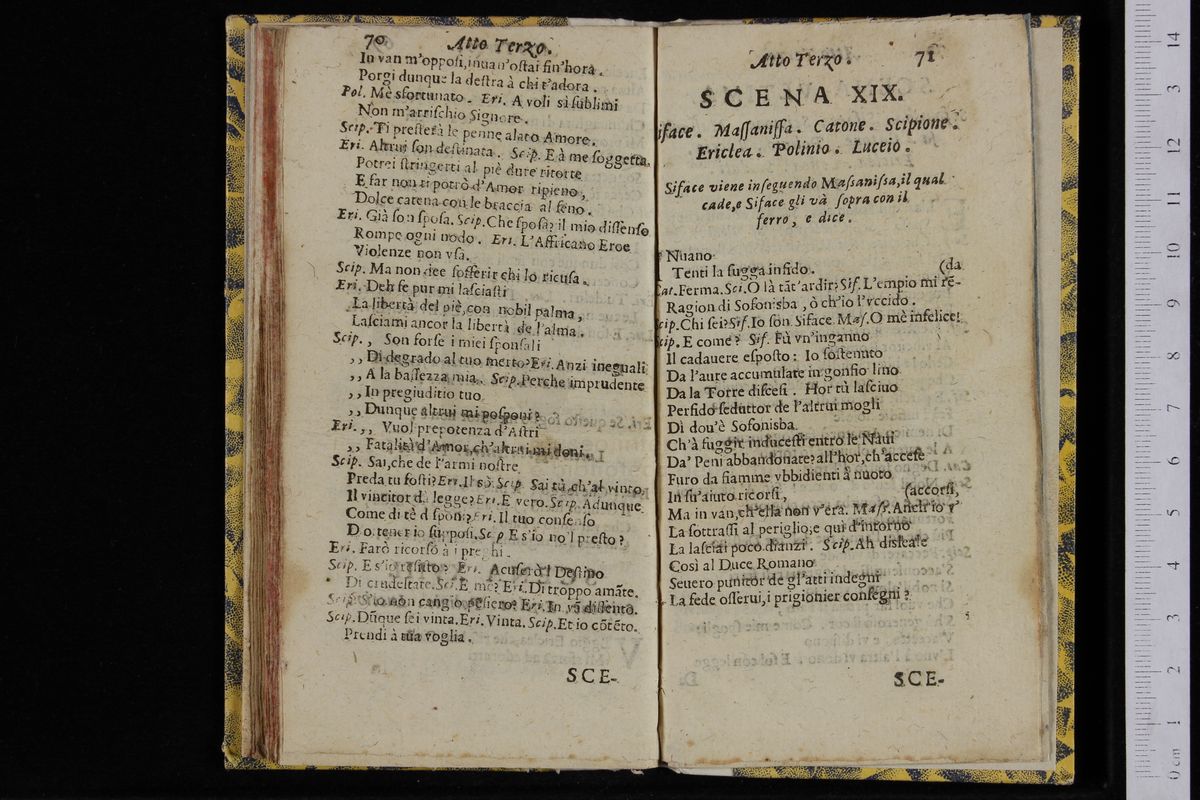 70 Atto Terzo.
In van m'opposi, inuan'ostai sin'hora.
Porgi dunque la destra à chi t'adora.
Pol. Mè sfortunato. Eri. A voli sì sublimi
Non m'arrischio Signore.
Scip. Ti presterà le penne alato Amore.
Eri. Altrui son destinata. Scip. E à me soggetta,
Potrei stringerti al piè dure ritorte
E far non ti potrò d'Amor ripieno,
Dolce catena con le braccia al seno.
Eri. Già son sposa. Scip. Che sposa? il mio dissenso
Rompe ogni nodo. Eri. L'Affricano Eroe
Violenze non vsa.
Scip. Ma non dee sofferir chi lo ricusa.
Eri. Deh se pur mi lasciasti
La libertà del piè, con nobil palma,
Lasciami ancor la libertà de l'alma.
Scip. ,, Son forse i miei sponsali
,, Di degrado al tuo merto? Eri. Anzi ineguali
,, A la bassezza mia. Scip. Perche imprudente
,, In pregiuditio tuo
,, Dunque altrui mi posponi?
Eri. ,, Vuol prepotenza d'Astri
,, Fatalità d'Amor, ch'altrui mi doni.
Scip. Sai, che de l'armi nostre
Preda tu fosti? Eri. Il sò. Scip Sai tù, ch'al vinto
Il vincitor dà legge? Eri. E vero. Scip. Adunque
Come di tè dispon? Eri. Il tuo consenso
D ottener io supposi. Scip E s'io no'l presto?
Eri. Farò ricorso à i preghi.
Scip. E s'io resisto? Eri. Acuserò l Destino
Di crudeltate. Sci. E mè? Eri. Di troppo amāte.
Scip. S'io non cangio pēsiero? Eri. In vā dissento.
Scip. Dūque sei vinta. Eri. Vinta. Scip. Et io cōtēto.
Prendi à tua voglia.
SCE-
Atto Terzo. 71
SCENA XIX.
iface. Massanissa. Catone. Scipione.
Ericlea. Polinio. Luceio.
Siface viene inseguendo Massanissa, il qual
cade, e Siface gli và sopra con il
ferro, e dice.
Nuano
Tenti la fugga infido. (da
Cat. Ferma. Sci. O là tāt'ardir? Sif. L'empio mi rē-
Ragion di Sofonisba, ò ch'io l'vccido.
Scip. Chi sei? Sif. Io son Siface. Mas. O mè infelice!
Scip. E come? Sif. Fù vn'inganno
Il cadauere esposto: Io sostenuto
Da l'aure accumulate in gonfio lino
Da la Torre discesi. Hor tù lasciuo
Perfido seduttor de l'altrui mogli
Dì dou'è Sofonisba.
Ch'à fuggir inducesti entro le Naui
Da' Peni abbandonate? all'hor, ch'accese
Furo da fiamme vbbidienti à nuoto
In su' aiuto ricorsi, (accorsi,
Ma in van, ch'ella non v'era. Mass. Anch'io v'
La sottrassi al periglio, e qui d'intorno
La lasciai poco dianzi. Scip. Ah disleale
Così al Duce Romano
Seuero punitor de gl'atti indegni
La fede osserui, i prigionier consegni?
SCE-